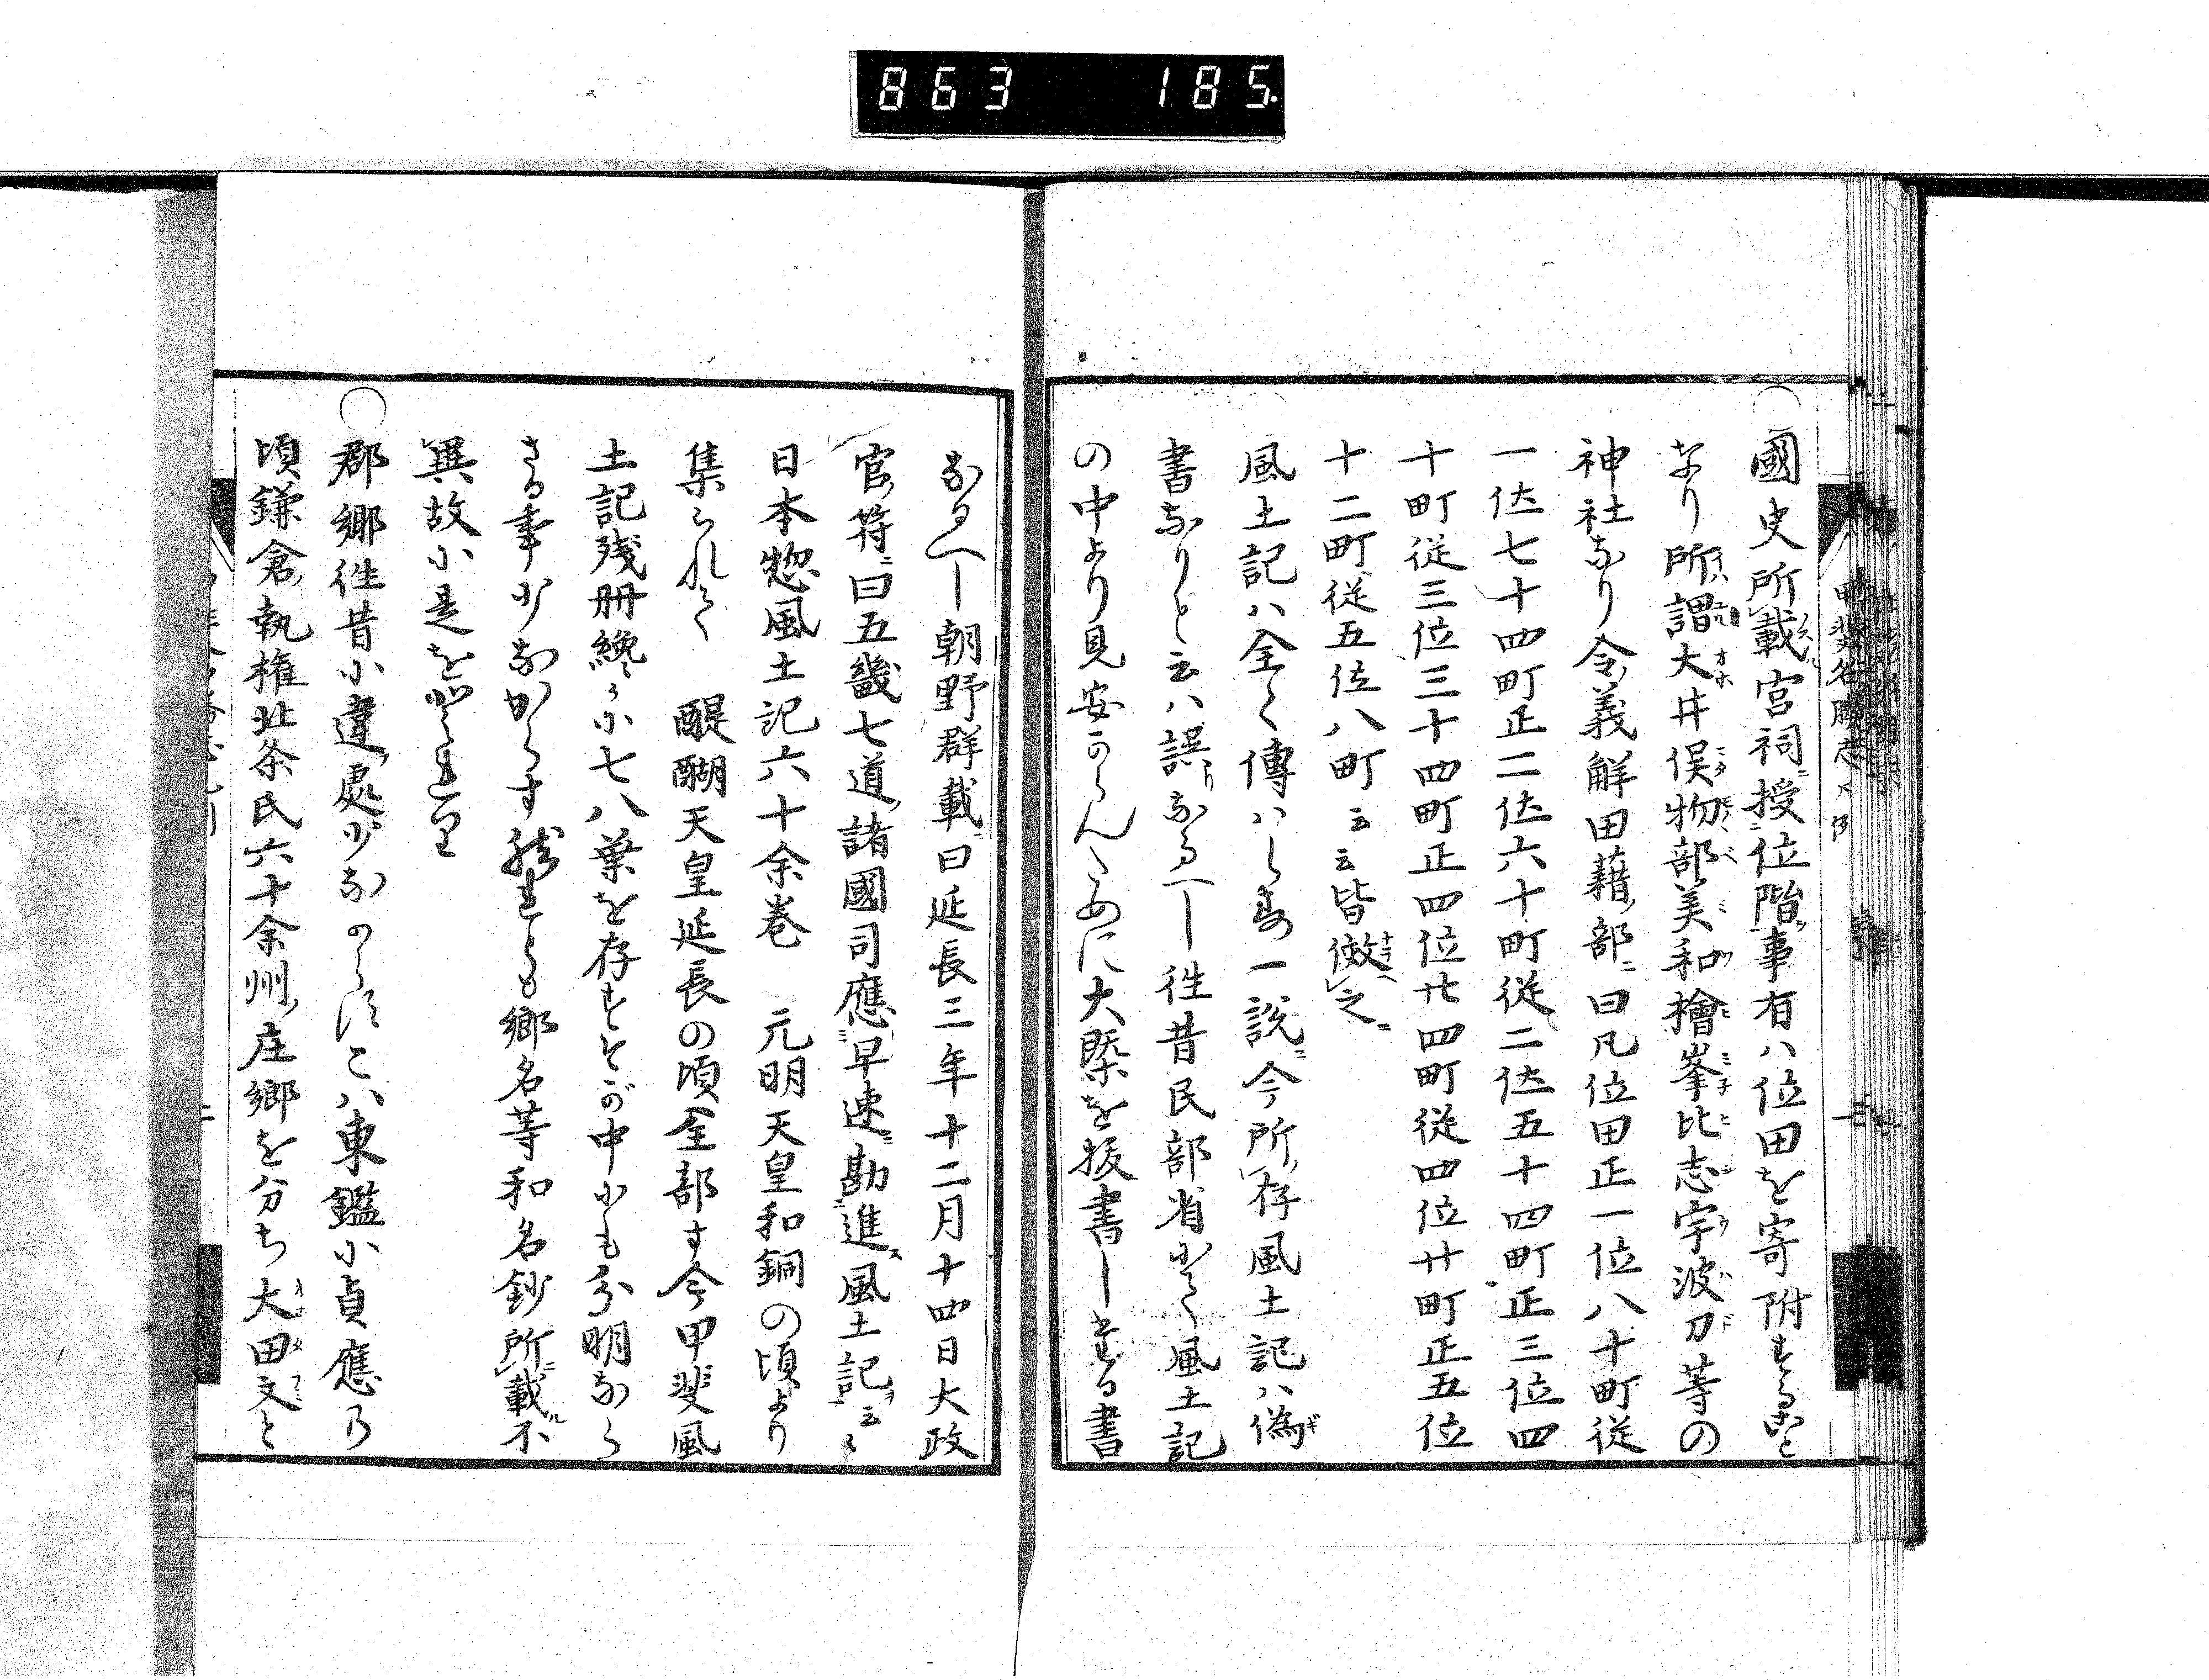 863 185
甲斐名勝志
國史所載宮祠授位階事有ハ位田を寄附せること
なり所謂大井俣物部美和檜峯比志宇波刀等の
神社なり令義解田藉部ニ曰凡位田正一位八十町従
一位七十四町正二位六十町従二位五十四町正三位四
十町従三位三十四町正四位廿四町従四位廿町正五位
十二町従五位八町云云皆倣之
風土記ハ全く傳ハらす一説ニ今所存風土記ハ偽
書なりと云ハ誤りなるへし徃昔民部省にて風土記
の中より見安からんために大槩を抜書しせる書
なるへし朝野群載ニ曰延長三年十二月十四日大政
官符ニ曰五畿七道諸國司應早速勘進風土記云々
日本惣風土記六十余巻 元明天皇和銅の頃より
集られて 醍醐天皇延長の頃全部す今甲斐風
土記残册纔かに七八葉を存せそか中にも分明なら
さる事少なからす然れとも郷名等和名鈔所載不
異故に是を
郡郷徃昔に違處少なからすこハ東鑑に貞應乃
頃鎌倉執権北条氏六十余州庄郷を分ち大田文と